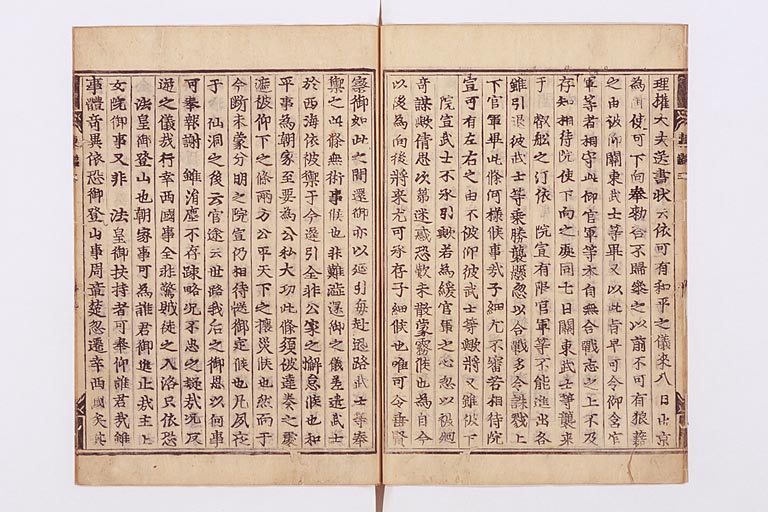 理權大夫送書狀云依可有和平之儀來八日出京
為御使可下向奉勅答不歸參之以前不可有狼藉
之由被仰關東武士等畢又以此旨早可令仰含官
軍等者相守此仰官軍等本自無合戰志之上不及
存知相待院使下向之處同七日關東武士等襲來
于 叡船之汀依 院宣有限官軍等不能進出各
雖引退彼武士等乘勝襲懸忽以合戰多令誅戮上
下官軍畢此條何樣候事哉子細尤不審若相待院
宣可有左右之由不被仰彼武士等歟將又雖被下
院宣武士不承引歟若為緩官軍之心忽以被廻
奇謀歟倩思次第迷惑恐歎未散蒙霧候也為自今
以後為向後將來尤可承存子細候也唯可令垂賢
察御如此之間還御亦以延引每赴還路武士等奉
禦之此條無術事候也非難澁還御之儀差遣武士
於西海依被禦于今遲引全非公家之懈怠候也和
平事為朝家至要為公私大功此條須被達奏之處
遮被仰下之條兩方公平天下之攘災候也然而于
今斷未蒙分明之院宣仍相待慥御定候也凡夙夜
于 仙洞之後云官途云世路我后之御恩以何事
可奉報謝 雖涓塵不存疎略況不忠之疑哉況反
逆之儀哉行幸西國事全非驚賊徒之入洛只依恐
法皇御登山也朝家事可為誰君御進止哉主上
女院御事又非 法皇御扶持者可奉仰誰君哉雖
事體奇異依恐御登山事周章楚忽遷幸西國矣其